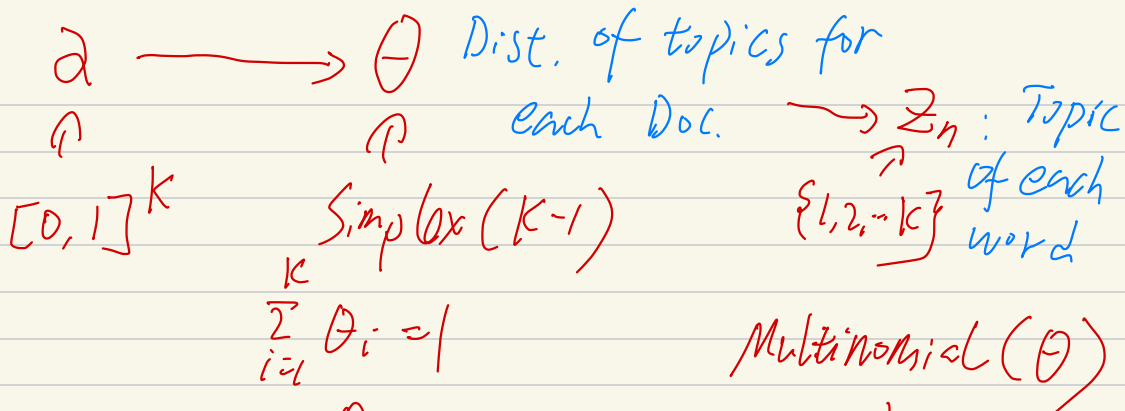 α ⟶ θ Dist. of topics for
each Doc. ⟶ Zn : Topic
of each
word
↑ ↑ ↗
[0,1]^K Simplex (K-1) {1,2,..K}
∑_{i=1}^{K} θi = 1
Multinomial (θ)